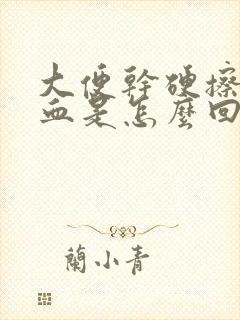 大便幹硬擦
血是怎麼回
蘭小青